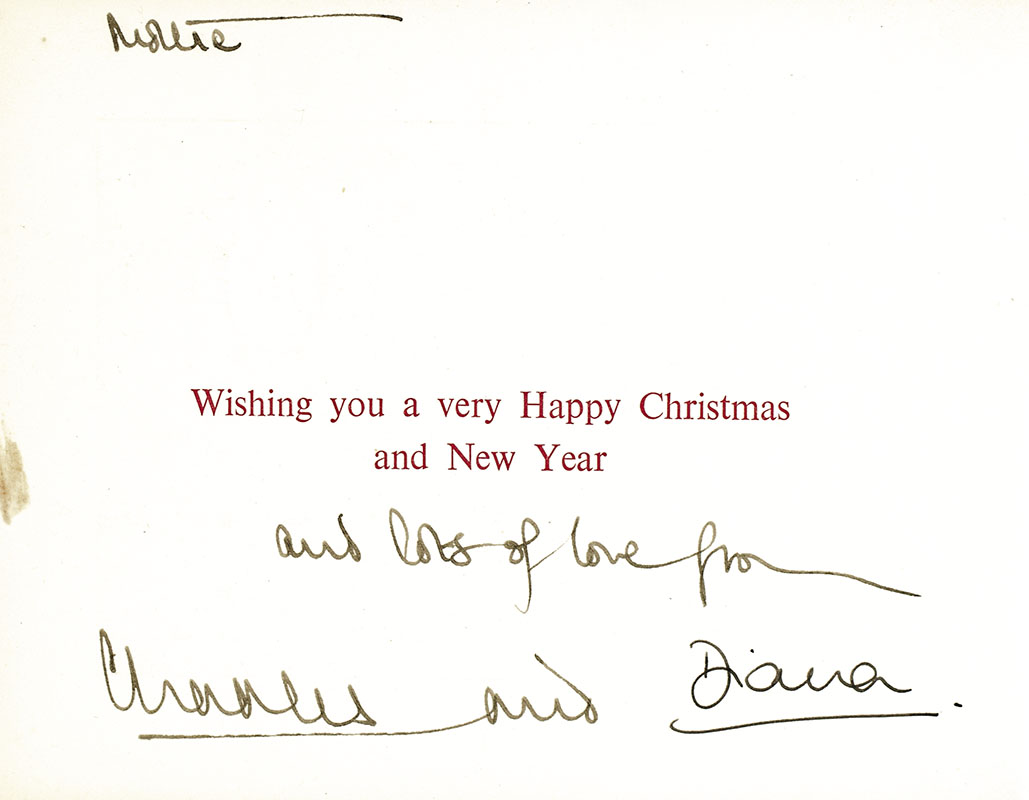 Mollie
Wishing you a very Happy Christmas
and New Year
and lots of love from
Charles and Diana.